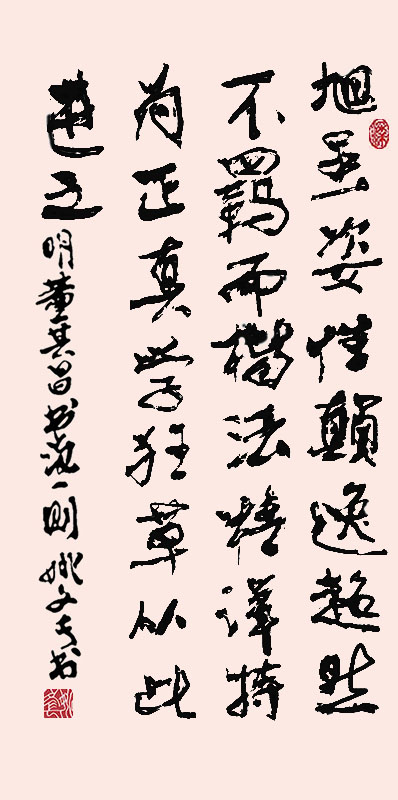 旭虽姿性顛逸超然
不羈而楷法精詳特
為正真學狂草从此
進之
明董其昌书一則 姚文书